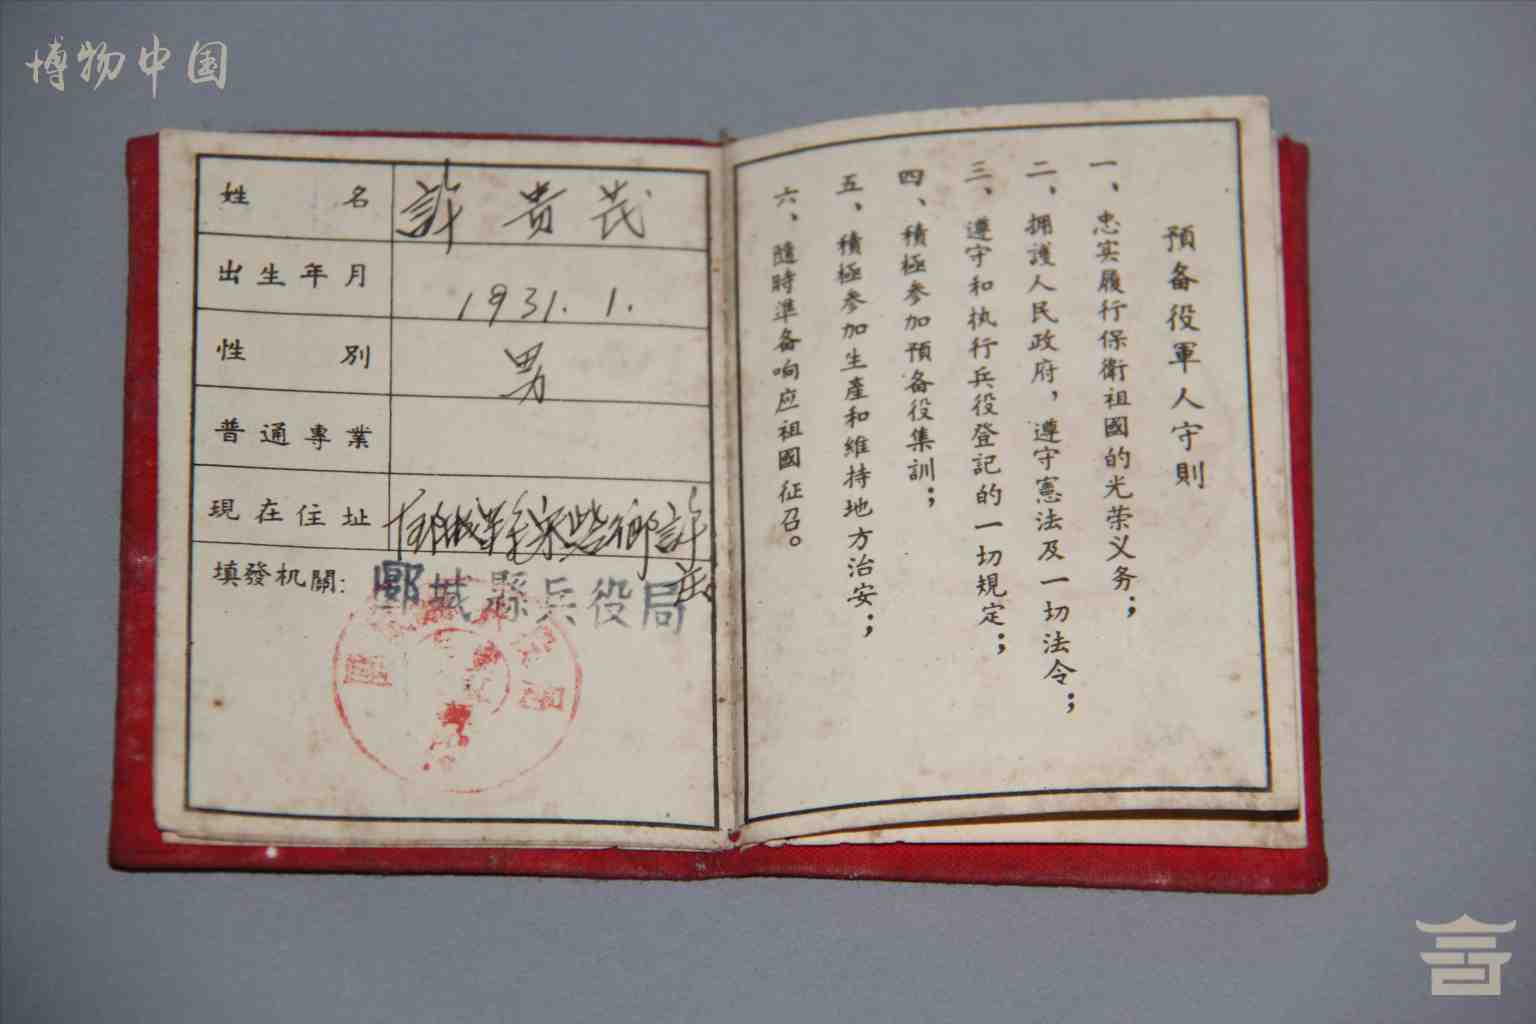 博物中国
姓名 許貴茂
出生年月 1931.1.
性別 男
普通專業
現在住址 城縣 鄉許
填發机關: 郾城縣兵役局
預备役軍人守則
一、忠实履行保衛祖國的光荣义务；
二、拥護人民政府，遵守憲法及一切法令；
三、遵守和执行兵役登記的一切規定；
四、積極参加預备役集訓；
五、積極参加生產和維持地方治安；
六、隨時準备响应祖國征召。